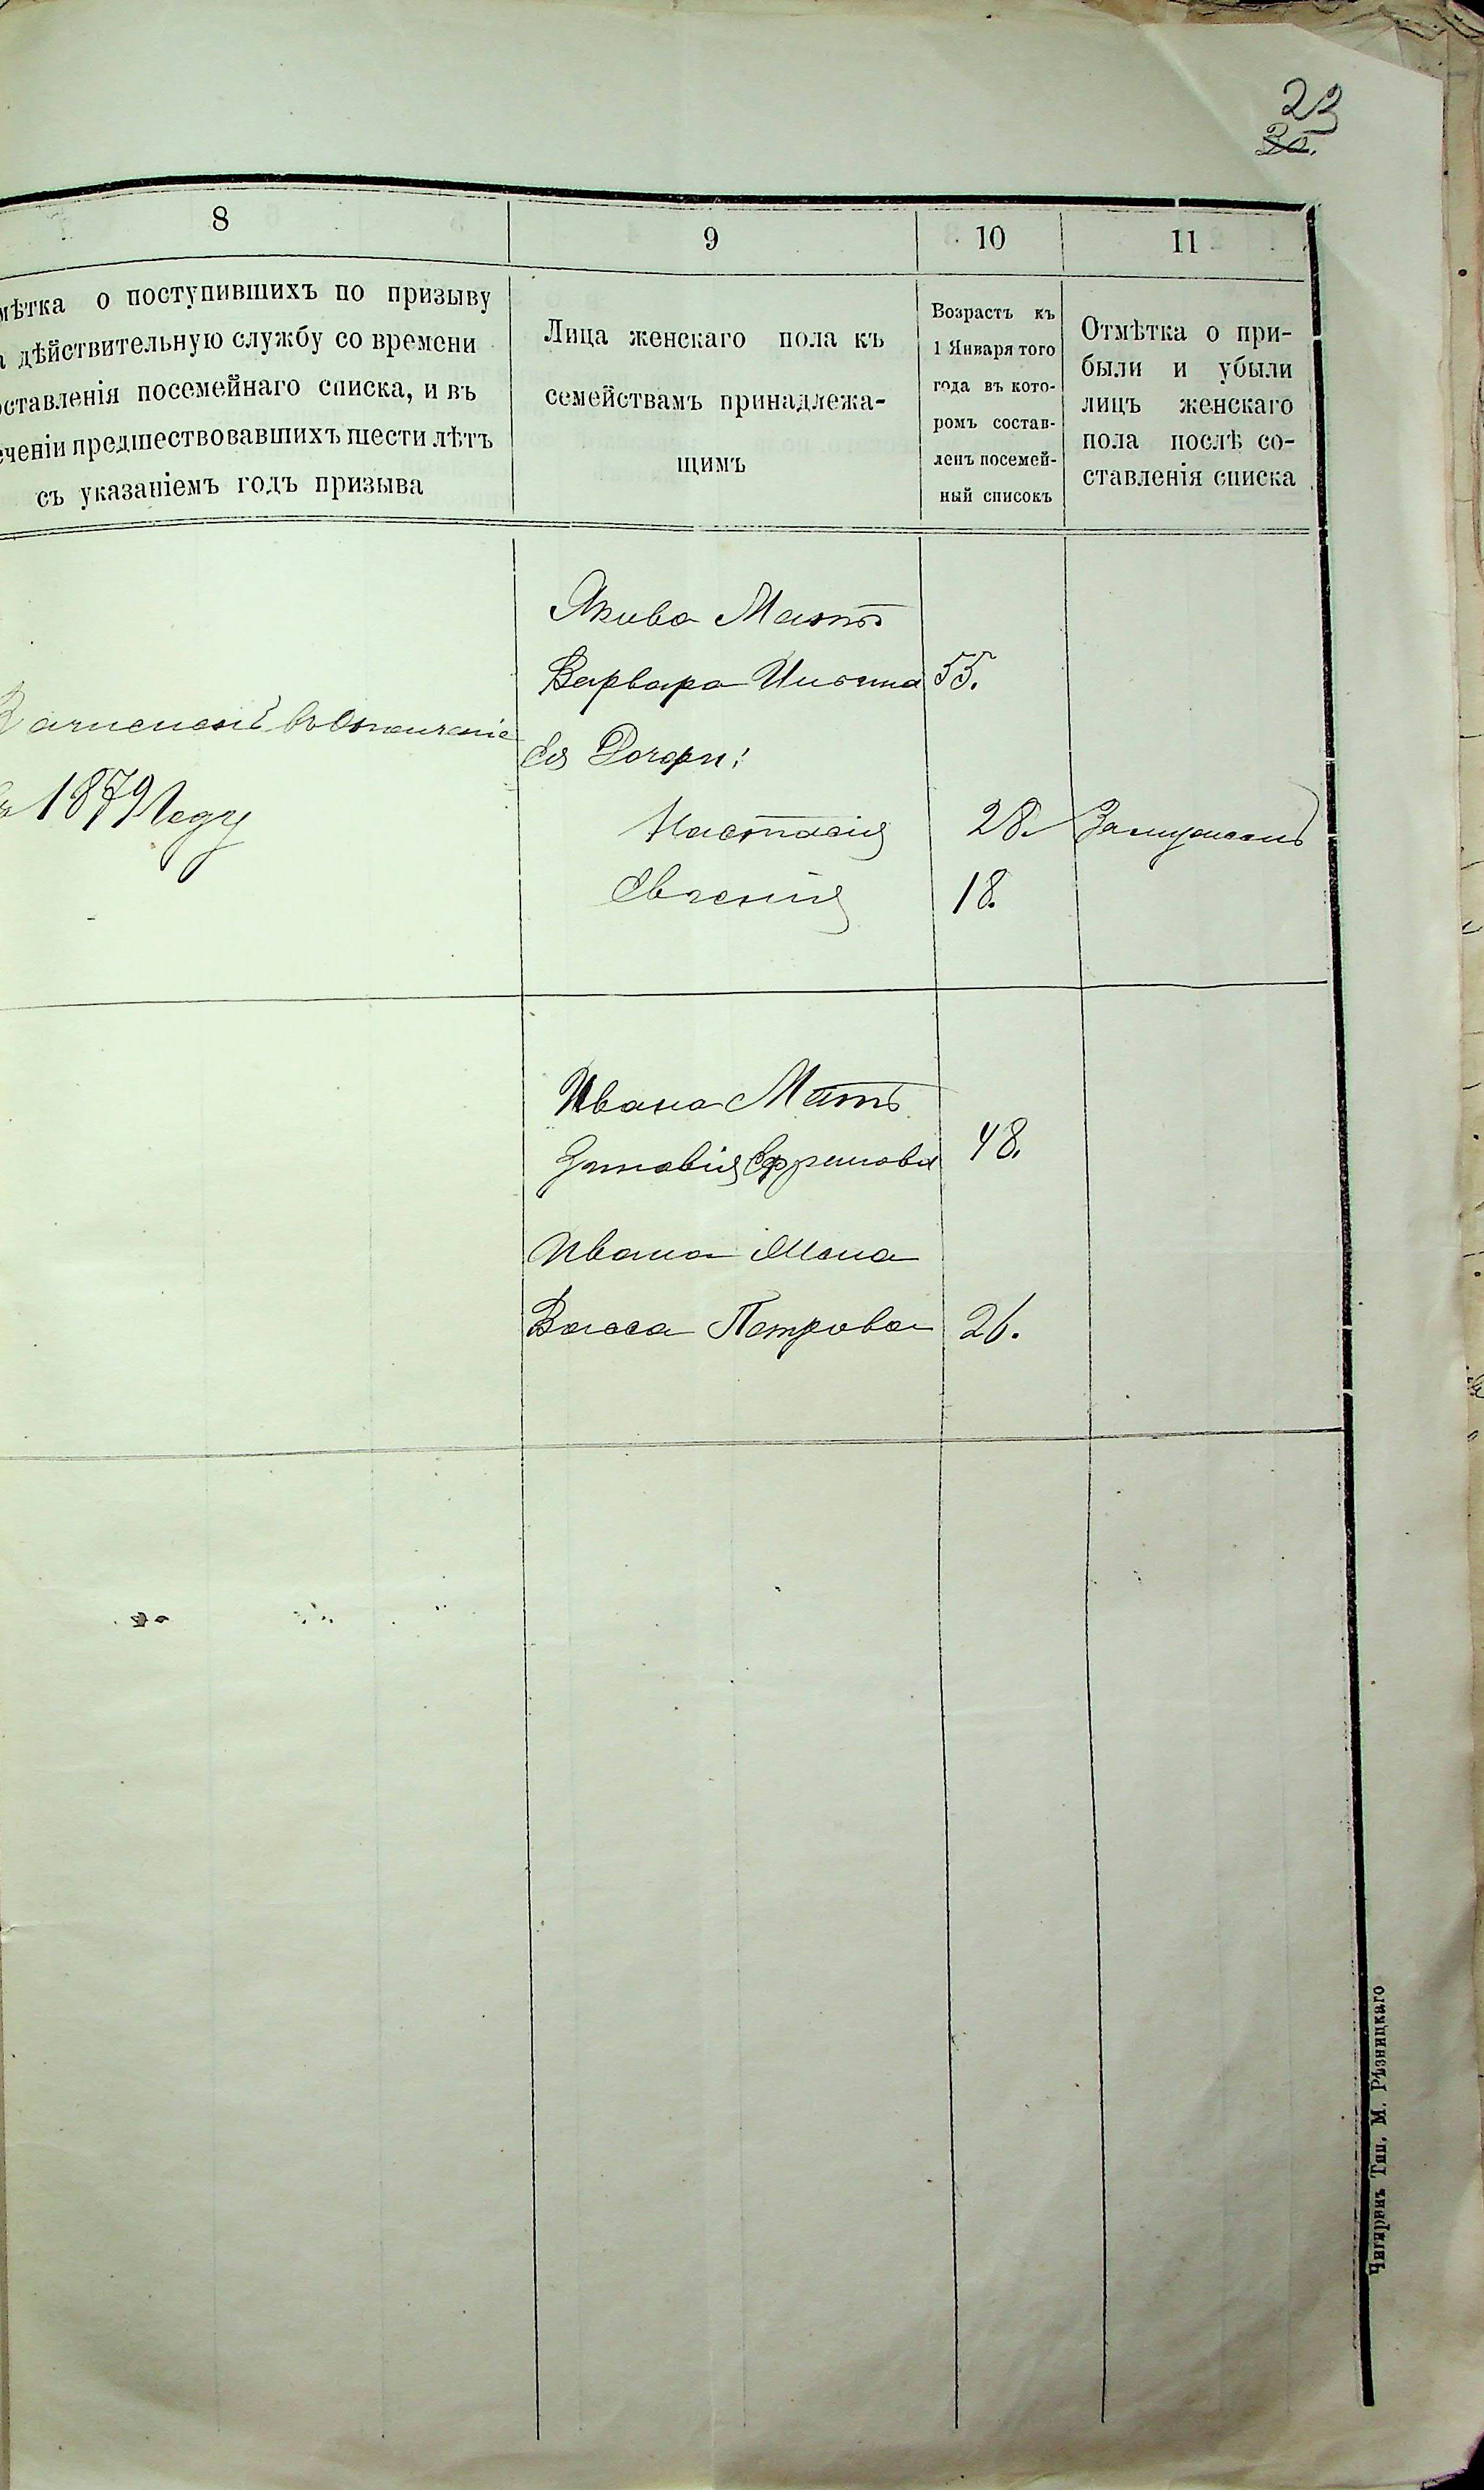 23
30.
8
9
10
11
мѣтка о поступившихъ по призыву
а дѣйствительную службу со времени
оставленія посемейнаго списка, и въ
еченіи предшествовавшихъ шести лѣтъ
съ указаніемъ годъ призыва
Лица женскаго пола къ
семействамъ принадлежа-
щимъ
Возрастъ къ
1 Января того
года въ кото-
ромъ состав-
ленъ посемей-
ный списокъ
Отмѣтка о при-
были и убыли
лицъ женскаго
пола послѣ со-
ставленія списка
Якова Мать
Варвара 55.
Зачисленъ въ Ополченіе
Ея Дочери:
1879 Году
Настасія 28. Замужемъ
Евгенія 18.
Ивана Мать
Зиновія Ефремова 48.
Ивана Жена
Васса Петрова 26.
Чигиринъ Тип. М. Рѣзницкаго